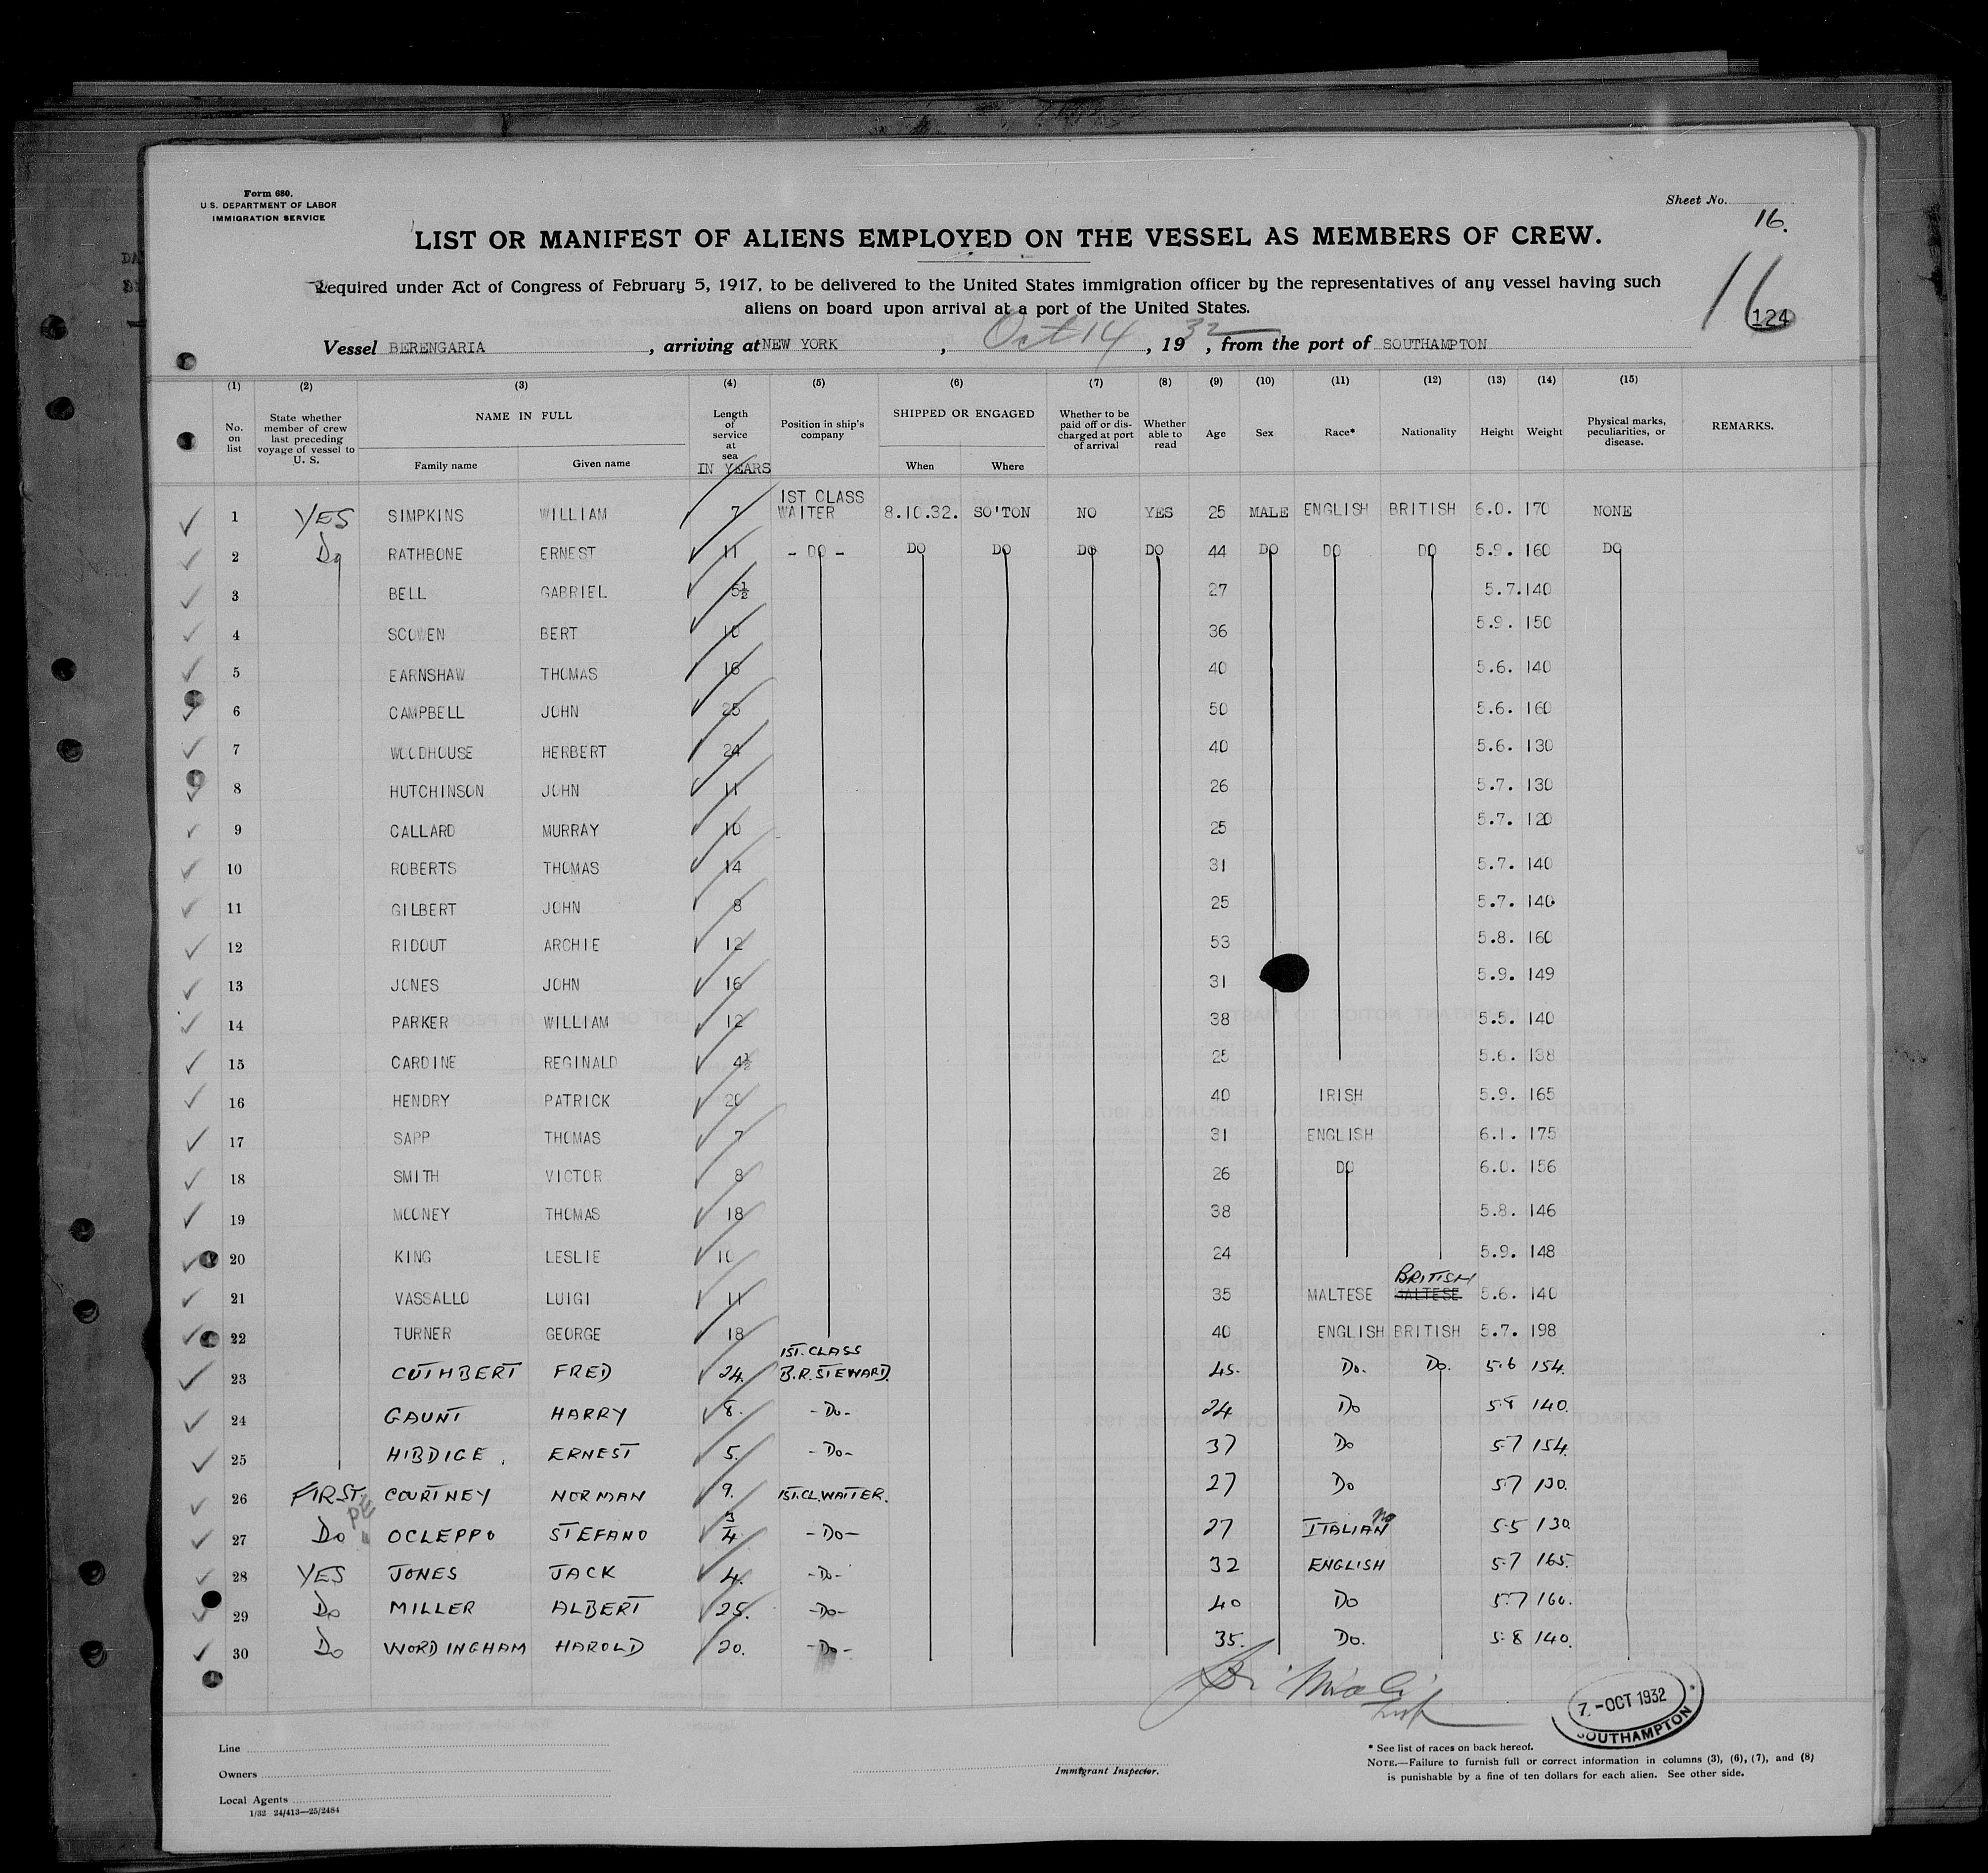 Form 680.
U.S. DEPARTMENT OF LABOR
IMMIGRATION SERVICE
Sheet No.
16.
LIST OR MANIFEST OF ALIENS EMPLOYED ON THE VESSEL AS MEMBERS OF CREW.
Required under Act of Congress of February 5, 1917, to be delivered to the United States immigration officer by the representatives of any vessel having such
aliens on board upon arrival at a port of the United States.
16
124
Vessel BERENGARIA, arriving at NEW YORK, Oct 14, 1932, from the port of SOUTHAMPTON
(1) (2) (3) (4) (5) (6) (7) (8) (9) (10) (11) (12) (13) (14) (15)
No. on list
State whether member of crew last preceding voyage of vessel to U. S.
NAME IN FULL
Family name Given name
Length of service at sea
IN YEARS
Position in ship's company
SHIPPED OR ENGAGED
When Where
Whether to be paid off or discharged at port of arrival
Whether able to read
Age Sex Race* Nationality Height Weight
Physical marks, peculiarities, or disease.
REMARKS.
1 YES SIMPKINS WILLIAM 7 1ST CLASS WAITER 8.10.32. SO'TON NO YES 25 MALE ENGLISH BRITISH 6.0. 170 NONE
2 Do RATHBONE ERNEST 11 - DO - DO DO DO DO 44 DO DO DO 5.9. 160 DO
3 BELL GABRIEL 5½ 27 5.7. 140
4 SCOWEN BERT 10 36 5.9. 150
5 EARNSHAW THOMAS 16 40 5.6. 140
6 CAMPBELL JOHN 25 50 5.6. 160
7 WOODHOUSE HERBERT 24 40 5.6. 130
8 HUTCHINSON JOHN 11 26 5.7. 130
9 CALLARD MURRAY 10 25 5.7. 120
10 ROBERTS THOMAS 14 31 5.7. 140
11 GILBERT JOHN 8 25 5.7. 140
12 RIDOUT ARCHIE 12 53 5.8. 160
13 JONES JOHN 16 31 5.9. 149
14 PARKER WILLIAM 12 38 5.5. 140
15 CARDINE REGINALD 4½ 25 5.6. 138
16 HENDRY PATRICK 20 40 IRISH 5.9. 165
17 SAPP THOMAS 7 31 ENGLISH 6.1. 175
18 SMITH VICTOR 8 26 DO 6.0. 156
19 MOONEY THOMAS 18 38 5.8. 146
20 KING LESLIE 10 24 5.9. 148
21 VASSALLO LUIGI 11 35 MALTESE MALTESE BRITISH 5.6. 140
22 TURNER GEORGE 18 40 ENGLISH BRITISH 5.7. 198
23 CUTHBERT FRED 24. 1ST. CLASS B.R. STEWARD. 45. Do. Do. 5.6 154.
24 GAUNT HARRY 8. -Do- 24 Do 5.8 140.
25 HIBDIGE, ERNEST 5. -Do- 37 Do 5.7 154.
26 FIRST COURTNEY NORMAN 9. 1ST.CL.WAITER. 27 Do 5.7 130.
27 Do PE " OCLEPPO STEFANO 3/4 -Do- 27 ITALIAN no 5.5 130
28 YES JONES JACK 4. -Do- 32 ENGLISH 5.7 165.
29 Do MILLER ALBERT 25. -Do- 40 Do 5.7 160.
30 Do WORDINGHAM HAROLD 20. -Do- 35. Do. 5.8 140.
7.-OCT 1932
SOUTHAMPTON
Line
Owners
Local Agents
1/32 24/413—25/2484
Immigrant Inspector.
* See list of races on back hereof.
NOTE.—Failure to furnish full or correct information in columns (3), (6), (7), and (8)
is punishable by a fine of ten dollars for each alien. See other side.